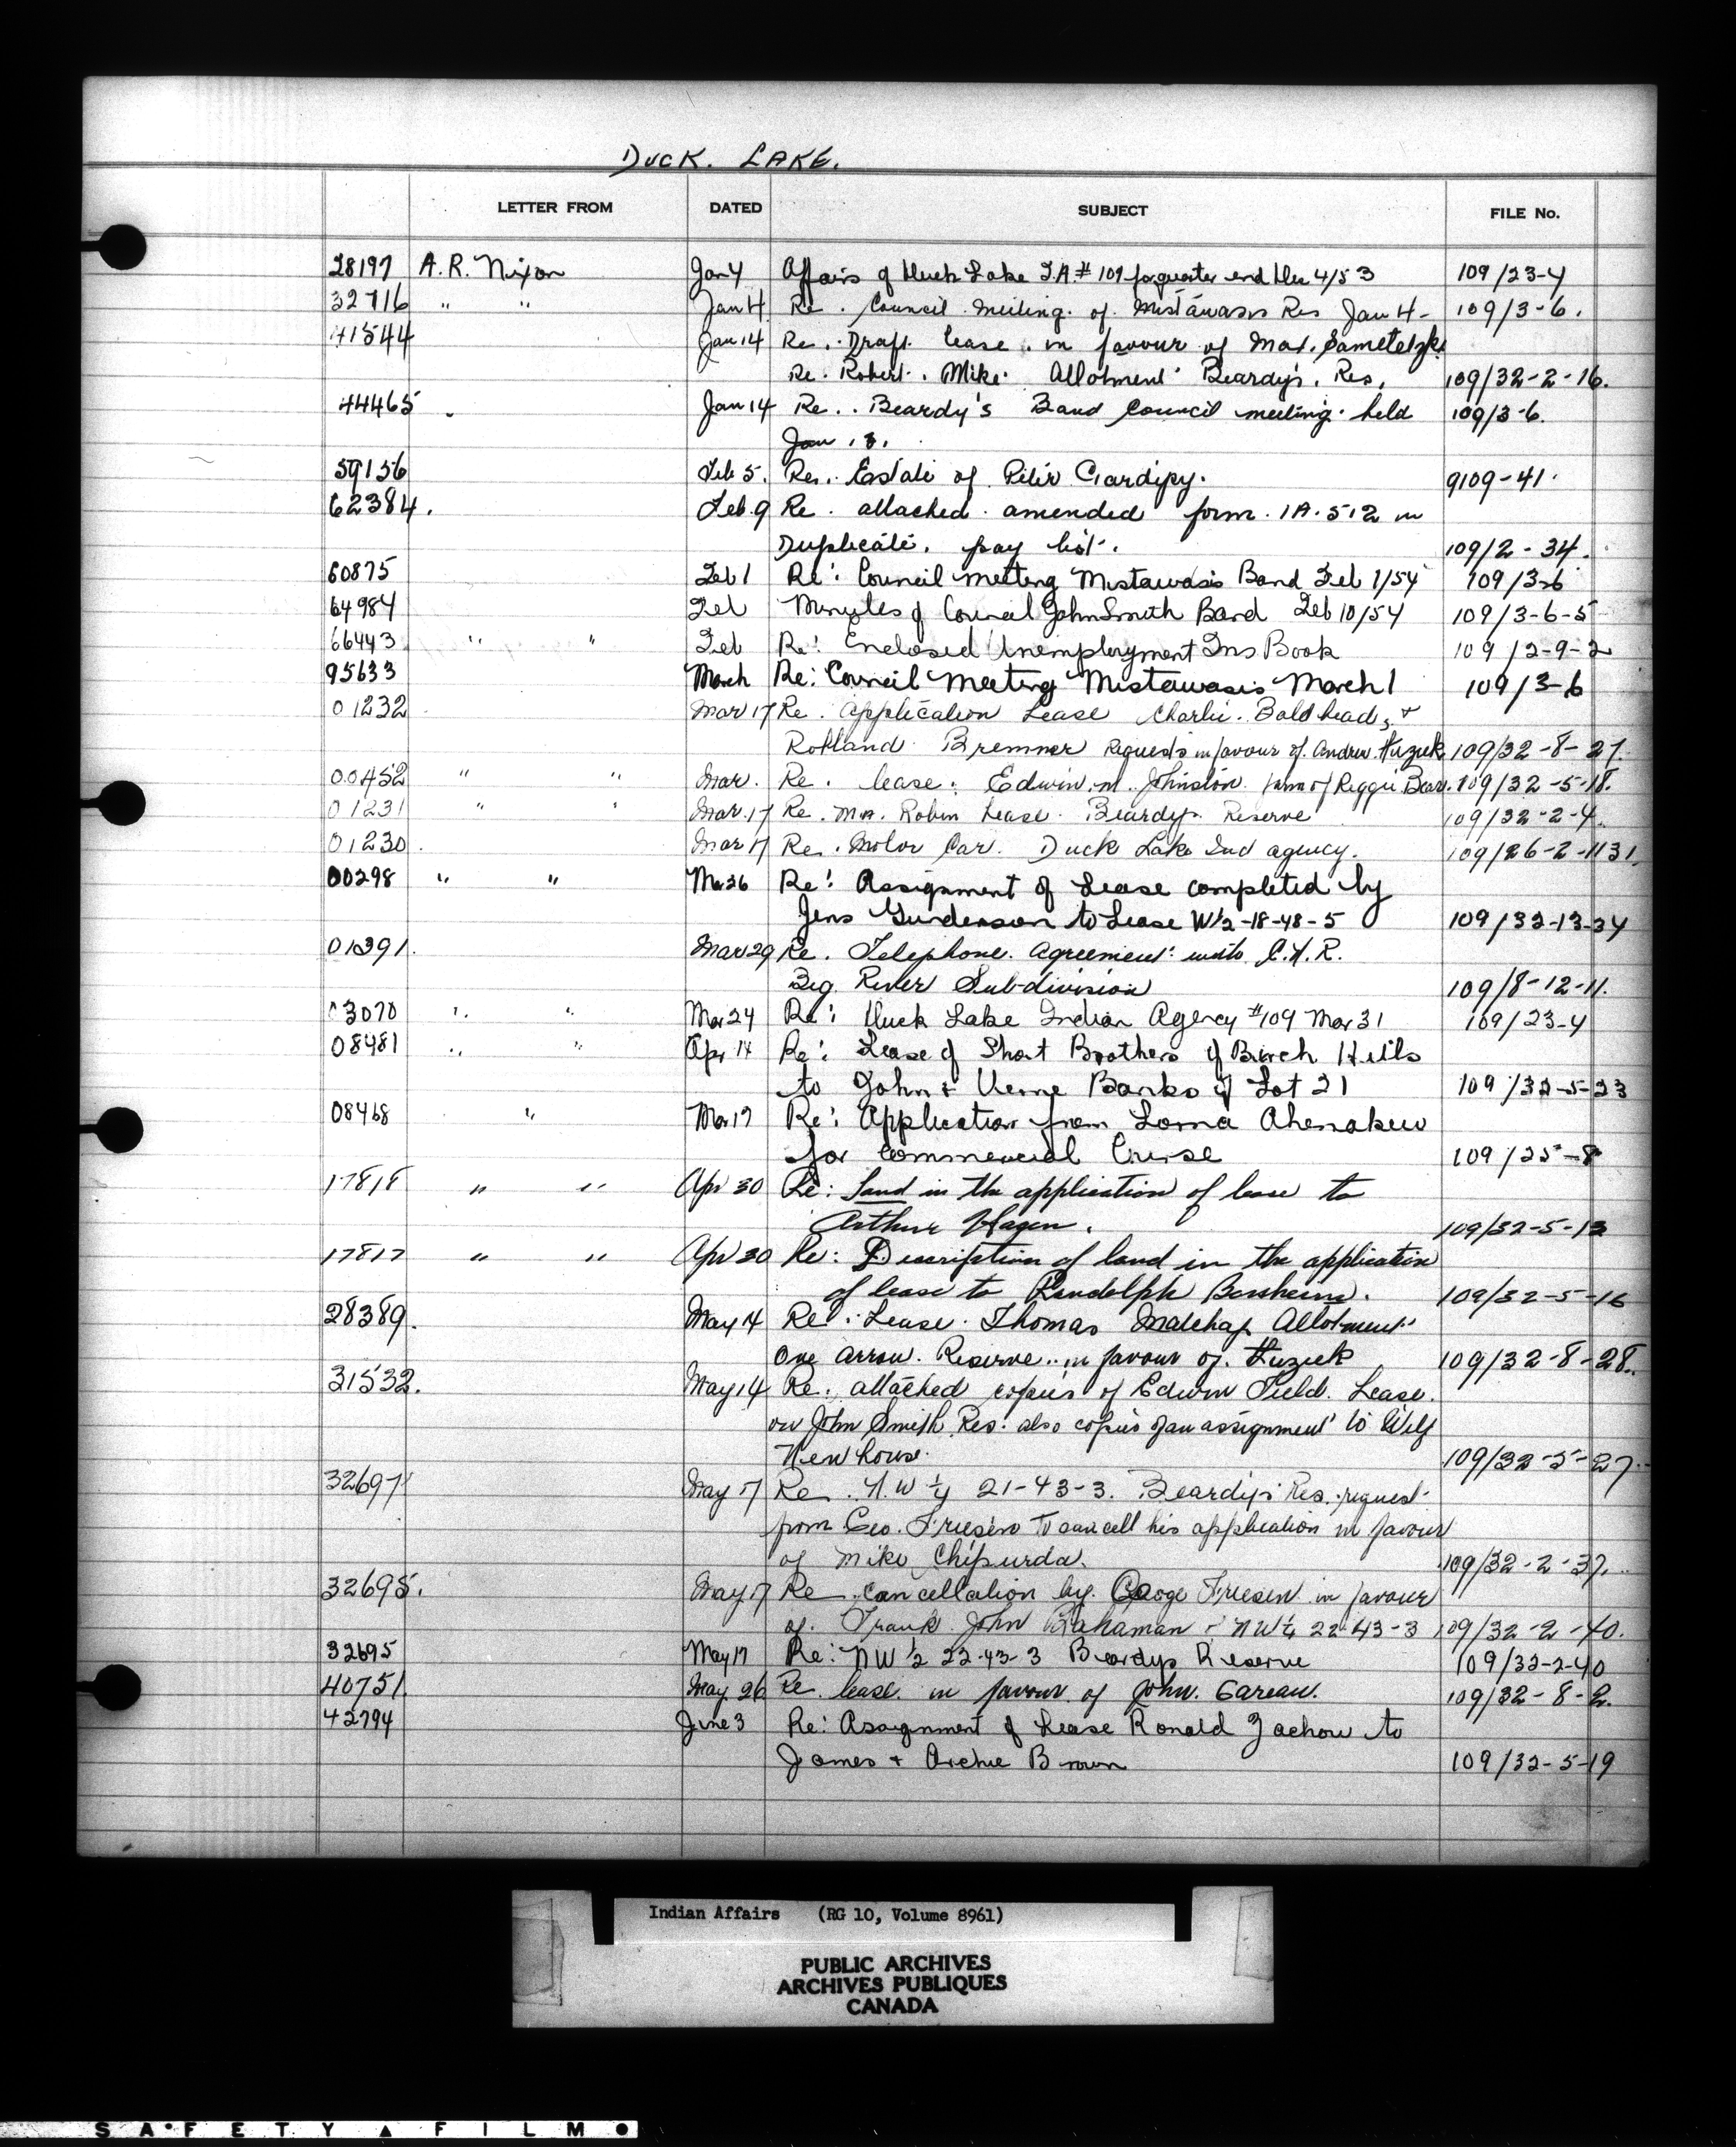 DUCK. LAKE.
LETTER FROM DATED SUBJECT FILE No.
28197 A.R. Nixon Jan 4 Affairs of Duck Lake I.A.# 109 for quarter end Dec 4/53 109/23-4
32716 " " Jan 4 Re. Council meeting of Mistawasis Res Jan 4- 109/3-6.
41544 Jan 14 Re. Draft lease in favour of Max. Sametelzki
Re. Robert. Mike. Allotment Beardy's. Res. 109/32-2-16.
44465 " Jan 14 Re. Beardy's Band Council meeting held 109/3-6.
Jan 13.
59156 Feb 5. Re. Estate of Peter Gardipy. 9109-41.
62384. Feb. 9 Re. attached amended form. IA.512 in
Duplicate. pay list. 109/2-34.
60875 Feb 1 Re: Council meeting Mistawasis Band Feb 1/54 109/3-6
64984 Feb Minutes of Council John Smith Band Feb 10/54 109/3-6-5
66443 " " Feb Re: Enclosed Unemployment Ins Book 109/2-9-2
95633 March Re: Council Meeting Mistawasis March 1 109/3-6
01232 Mar 17 Re. application Lease Charlie. Baldhead, +
Rolland Bremner Requests in favour of. Andrew. Huziek 109/32-8-27.
00452 " " Mar. Re. lease: Edwin. M. Johnston farm of Reggie Bear. 109/32-5-18.
01231 " " Mar. 17 Re. Robin Lease. Beardys Reserve 109/32-2-4.
01230. Mar 17 Re. Motor Car. Duck Lake Ind agency. 109/26-2-1131.
00298 " " Mar 26 Re: Assignment of Lease completed by
Jens Gunderson to Lease W½-18-48-5 109/32-13-34
01391. Mar 29 Re. Telephone. Agreement with C.N.R.
Big River Sub-division 109/8-12-11.
03070 " " Mar 24 Re: Duck Lake Indian Agency #109 Mar 31 109/23-4
08481 " " Apr 14 Re: Lease of Short Brothers of Birch Hills
to John & Verne Banks of Lot 21 109/32-5-23
08468 " Mar 17 Re: Application from Lorna Ahenakew
for Commercial Course 109/25-8
17818 " " Apr 30 Re: Land in the application of lease to
Arthur Hagen. 109/32-5-13
17817 " " Apr 30 Re: Description of land in the application
of lease to Randolph Borsheim. 109/32-5-16
28389. May 14 Re: Lease. Thomas Matchap Allotment
One Arrow. Reserve.. in favour of. Huziek 109/32-8-28.
31532. May 14 Re. attached copies of Edwin Field. Lease.
on John Smith Res. also copies of an assignment to Wilf
Newhouse. 109/32-5-27.
32697 May 17 Re. N.W ¼ 21-43-3. Beardys Res. request
from Geo. Friesen to cancell his application in favour
of Mike Chipurda. 109/32-2-37.
32695. May 17 Re cancellation by. George Friesen in favour
of. Frank John Bahaman - NW¼ 22-43-3 109/32-2-40.
32695 May 17 Re: NW ½ 22-43-3 Beardys Reserve 109/32-2-40
40751. May. 26 Re lease. in favour of John. Gareau. 109/32-8-2.
42794 June 3 Re: Assignment of Lease Ronald Zachow to
James + Archie Brown 109/32-5-19
Indian Affairs (RG 10, Volume 8961)
PUBLIC ARCHIVES
ARCHIVES PUBLIQUES
CANADA
SAFETY ▲ FILM ●